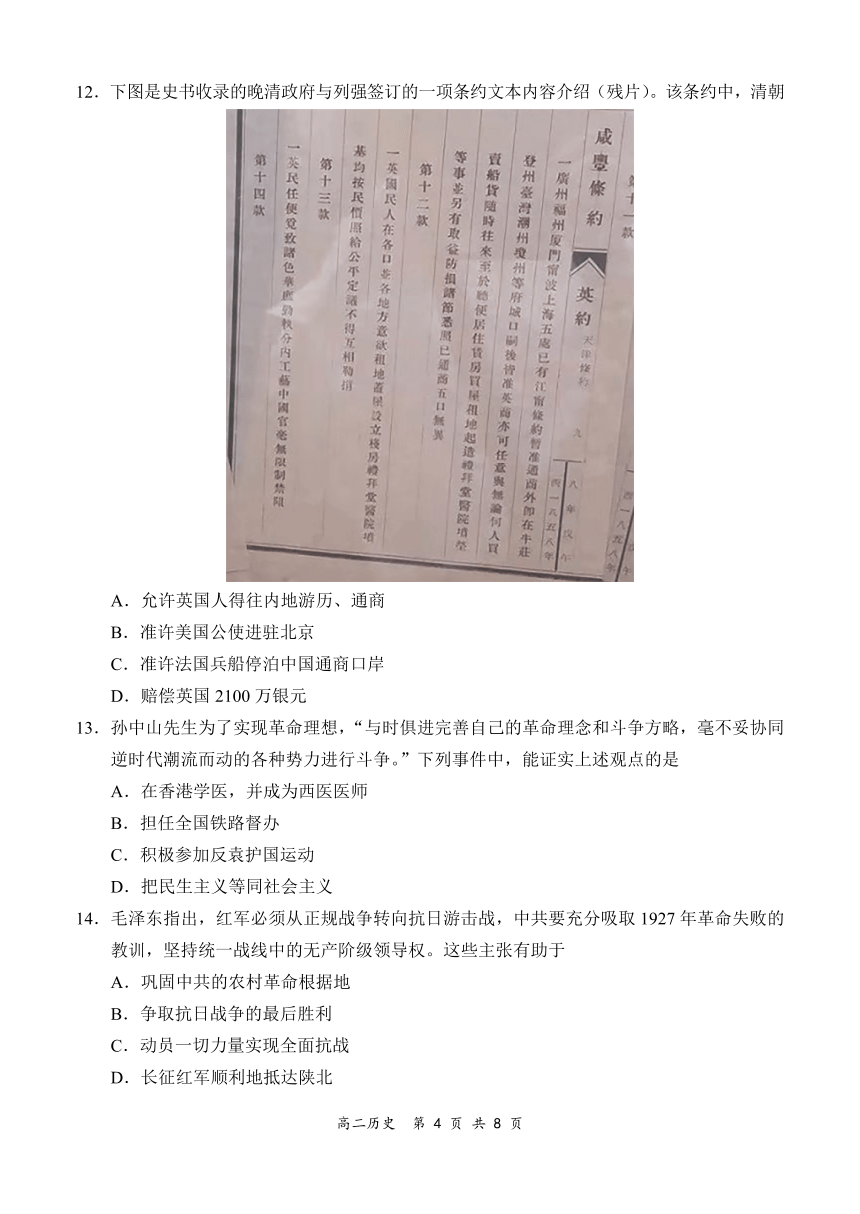 12．下图是史书收录的晚清政府与列强签订的一项条约文本内容介绍（残片）。该条约中，清朝
第十一款
咸豐條約
英約 天津條約 九
八年戊午
西一八五八年
一廣州福州厦門甯波上海五處已有江甯條約暫准通商外即在牛莊
登州臺灣潮州瓊州等府城口嗣後皆准英商亦可任意與無論何人買
賣船貨隨時往來至於聽便居住賃房買屋租地起造禮拜堂醫院墳塋
等事並另有取益防損諸節悉照已通商五口無異
第十二款
一英國民人在各口並各地方意欲租地蓋屋設立棧房禮拜堂醫院墳
基均按民價照給公平定議不得互相勒掯
第十三款
一英民任便覓致諸色華庶勷執分内工藝中國官毫無限制禁阻
第十四款
A．允许英国人得往内地游历、通商
B．准许美国公使进驻北京
C．准许法国兵船停泊中国通商口岸
D．赔偿英国 2100 万银元
13．孙中山先生为了实现革命理想，“与时俱进完善自己的革命理念和斗争方略，毫不妥协同
逆时代潮流而动的各种势力进行斗争。”下列事件中，能证实上述观点的是
A．在香港学医，并成为西医医师
B．担任全国铁路督办
C．积极参加反袁护国运动
D．把民生主义等同社会主义
14．毛泽东指出，红军必须从正规战争转向抗日游击战，中共要充分吸取 1927 年革命失败的
教训，坚持统一战线中的无产阶级领导权。这些主张有助于
A．巩固中共的农村革命根据地
B．争取抗日战争的最后胜利
C．动员一切力量实现全面抗战
D．长征红军顺利地抵达陕北
高二历史 第 4 页 共 8 页